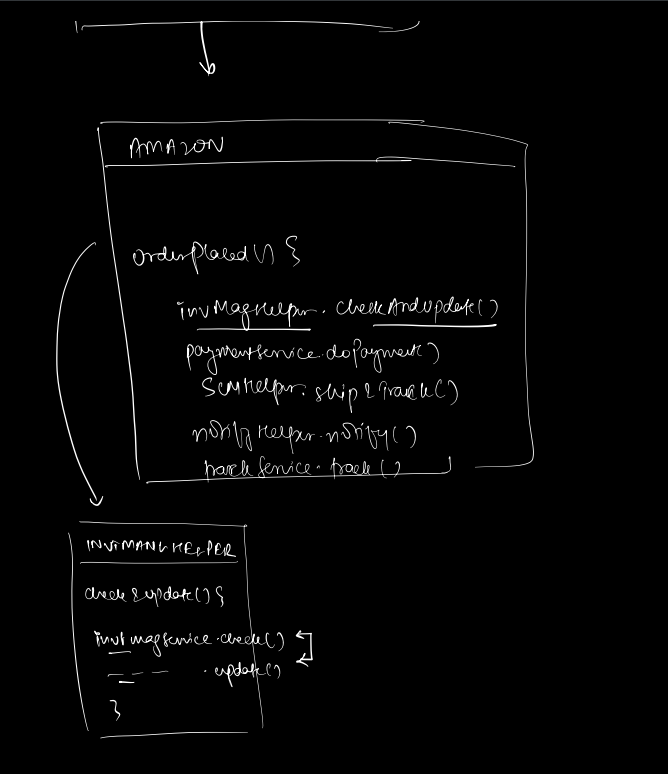 AMAZON
orderPlaced() {
invMagHelper. checkAndUpdate()
paymentService.doPayment()
SCMHelper. ship&Track()
notifyHelper.notify()
trackService. track()
INVTMANGHELPER
check&update() {
invtmagservice.check()
- - - - .update()
}